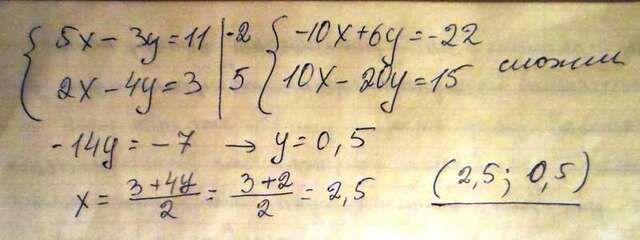 { 5x - 3y = 11 | -2 { -10x + 6y = -22
2x - 4y = 3 | 5 10x - 20y = 15 сложим
-14y = -7 → y = 0,5
x = (3+4y)/2 = (3+2)/2 = 2,5 (2,5; 0,5)